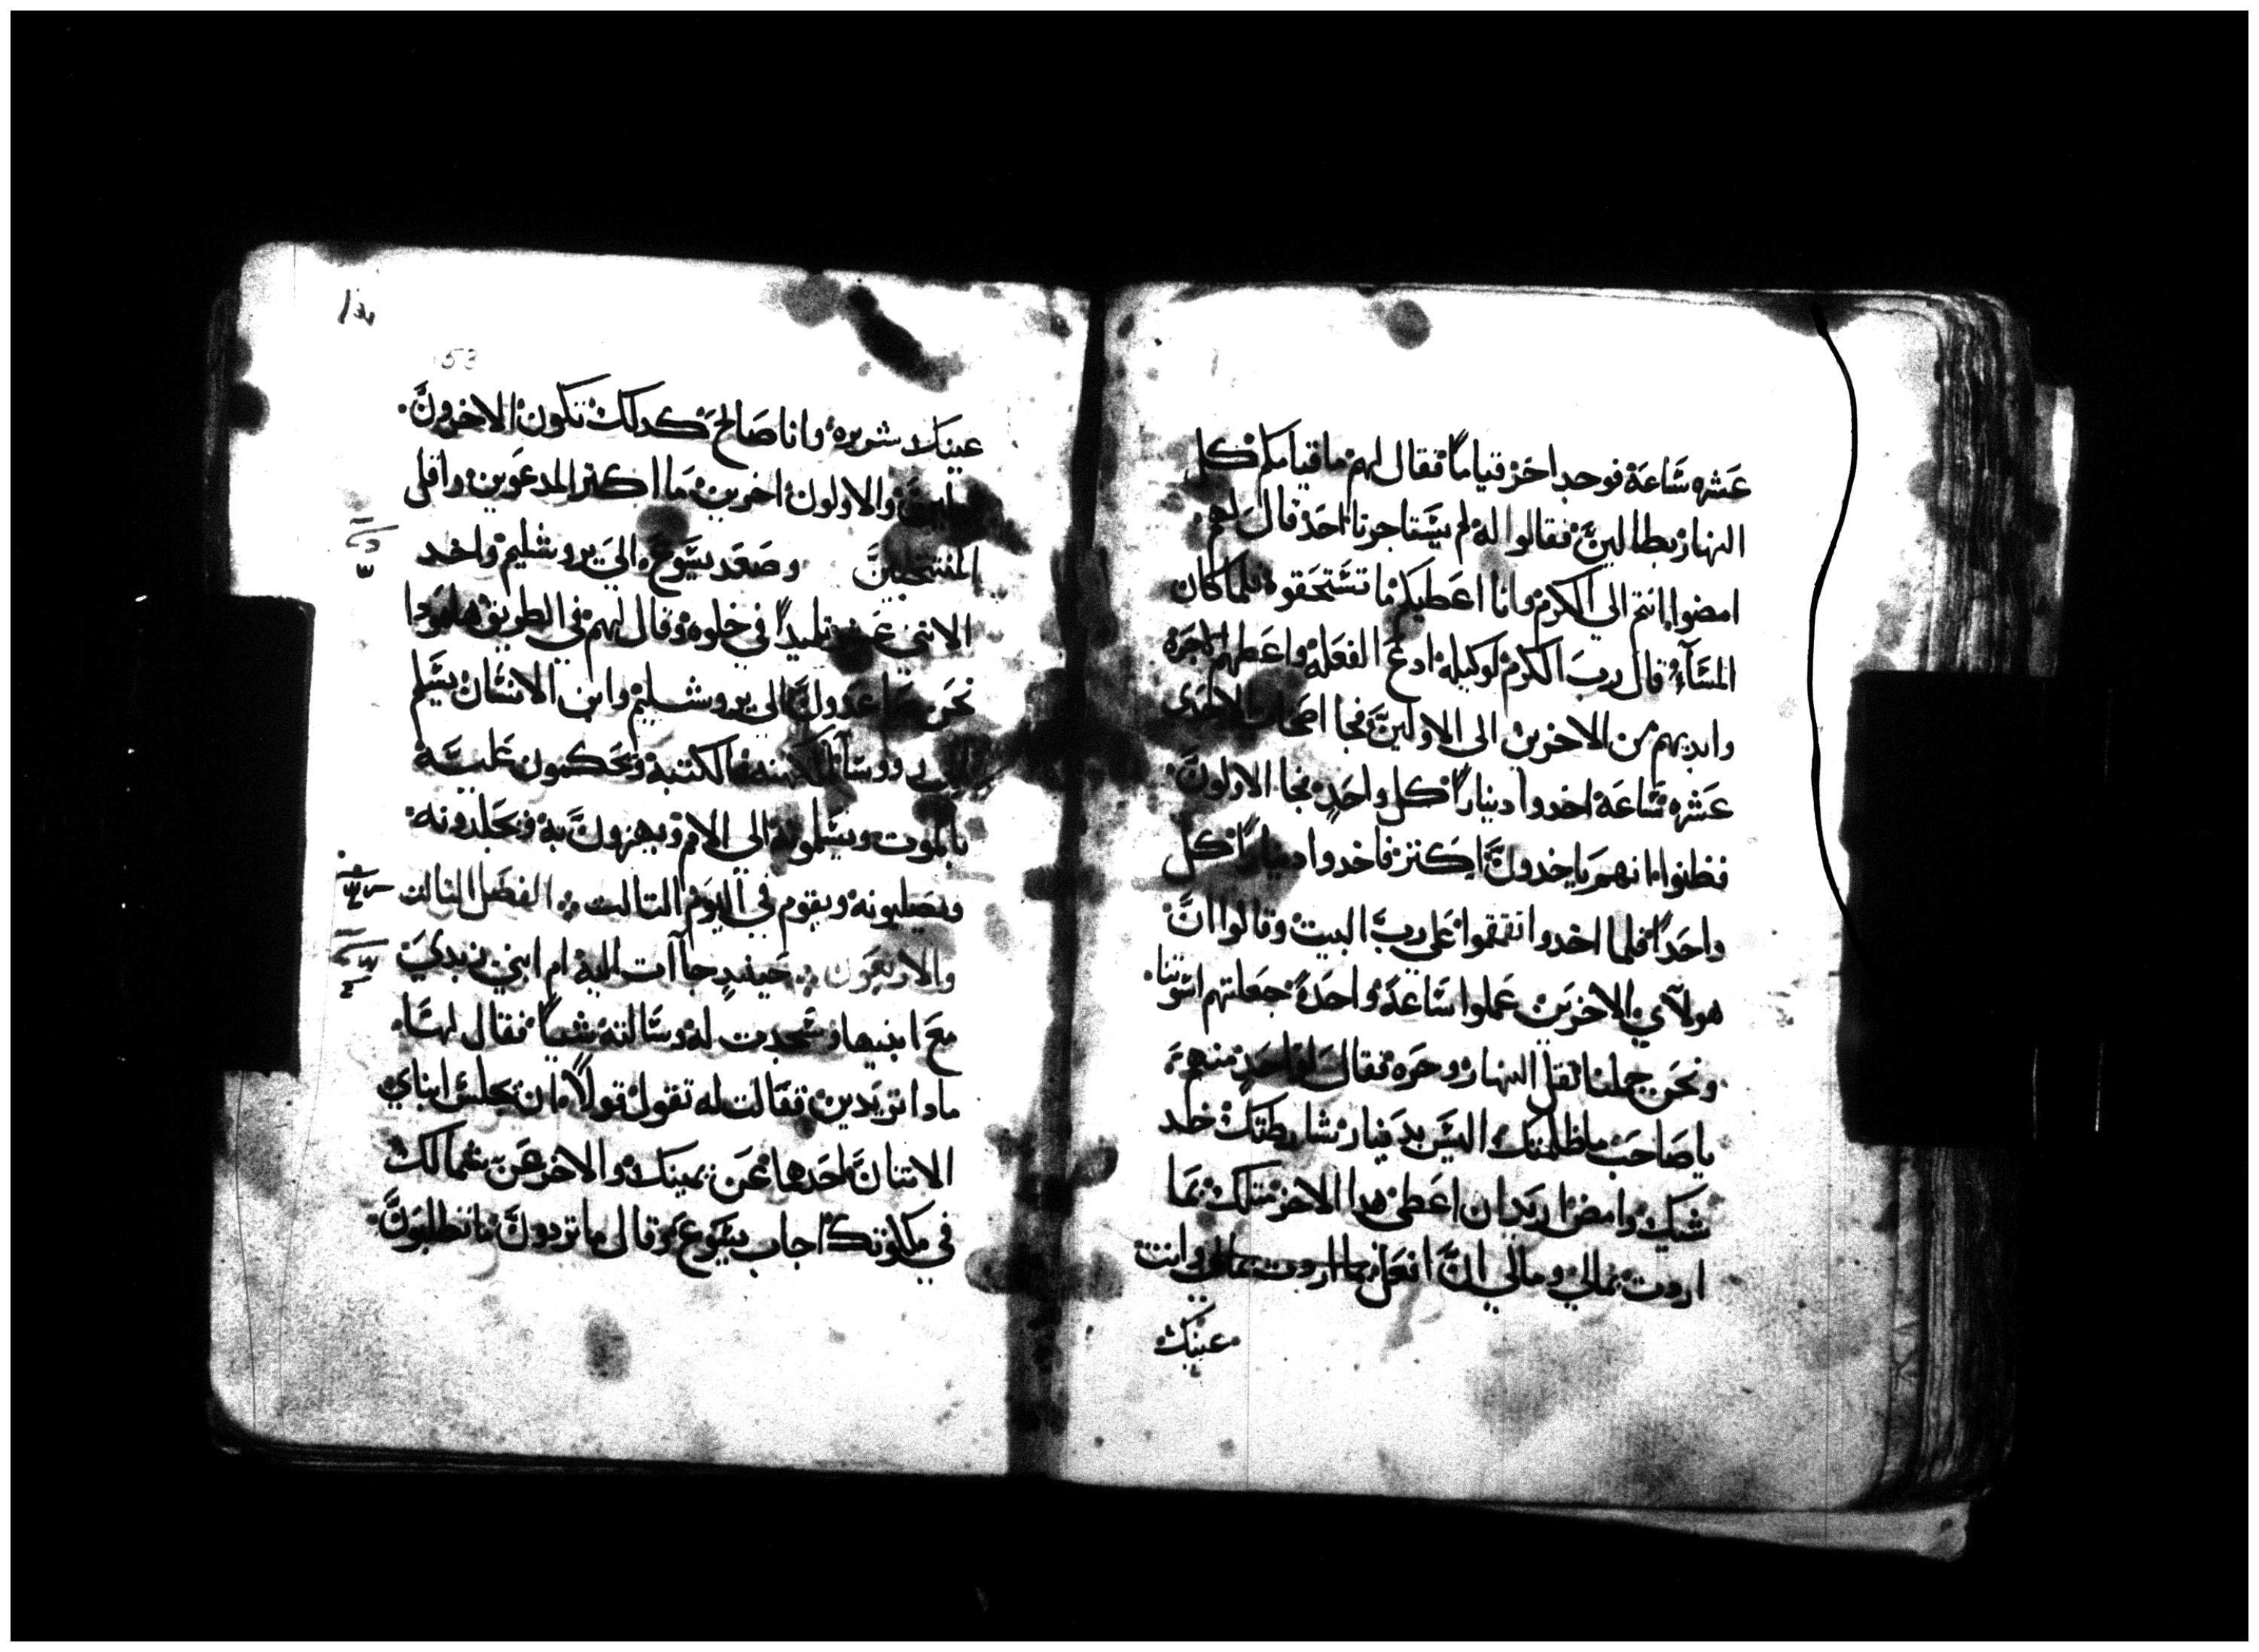 عشره ساعة فوجد اخر قياماً فقال لهم ما قيامكم كل
النهار بطالين فقالوا له لم يستاجرنا احد قال لهم
امضوا انتم الى الكرم وانا اعطيكم ما تستحقوه فلما كان
المسآء قال رب الكرم لوكيله ادع الفعله واعطهم الاجره
وابديهم من الاخرين الى الاولين فجا اصحاب الاحدى
عشره ساعة اخدوا ديناراً كل واحد فجا الاولون
فظنوا انهم ياخدون اكتر فاخدوا ديناراً كل
واحداً فلما اخدوا تقمقموا على رب البيت وقالوا ان
هولآي الاخرين عملوا ساعة واحدة جعلتهم اسوتنا
ونحن حملنا ثقل النهار وحره فقال لواحد منهم
يا صاحب ما ظلمتك اليس بدينار شارطتك خد
شيك وامض اريد ان اعطى هدا الاخر متلك بما
اردت بمالي ومالي ان افعل بما اردت بمالي وانت
عينك
53
عينك شريره وانا صالح كدلك تكون الاخرون
والاولون اخرين ما اكتر المدعوين واقل
المنتخبين وصعد يسوع الى يروشليم واخد
الاتنى عشر تلميداً في خلوه وقال لهم في الطريق هامودا
نحن صاعدون الى يروشليم وابن الانسان يسلم
الى رووسا الكهنه والكتبة ويحكمون عليه
بالموت ويسلمونه الى الامم ويهزون به ويجلدونه
ويصلبونه ويقوم في اليوم التالت الفصل التالت
والاربعون حينيدٍ جآات اليه ام ابني زبدي
مع ابنيها وسجدت له وسالته شياً فقال لها
مادا تريدين فقالت له تقول قولاً ان يجلس ابناي
الاتنان احدها عن يمينك والاخر عن شمالك
في ملكوتك اجاب يسوع وقال ما تردون ما تطلبون